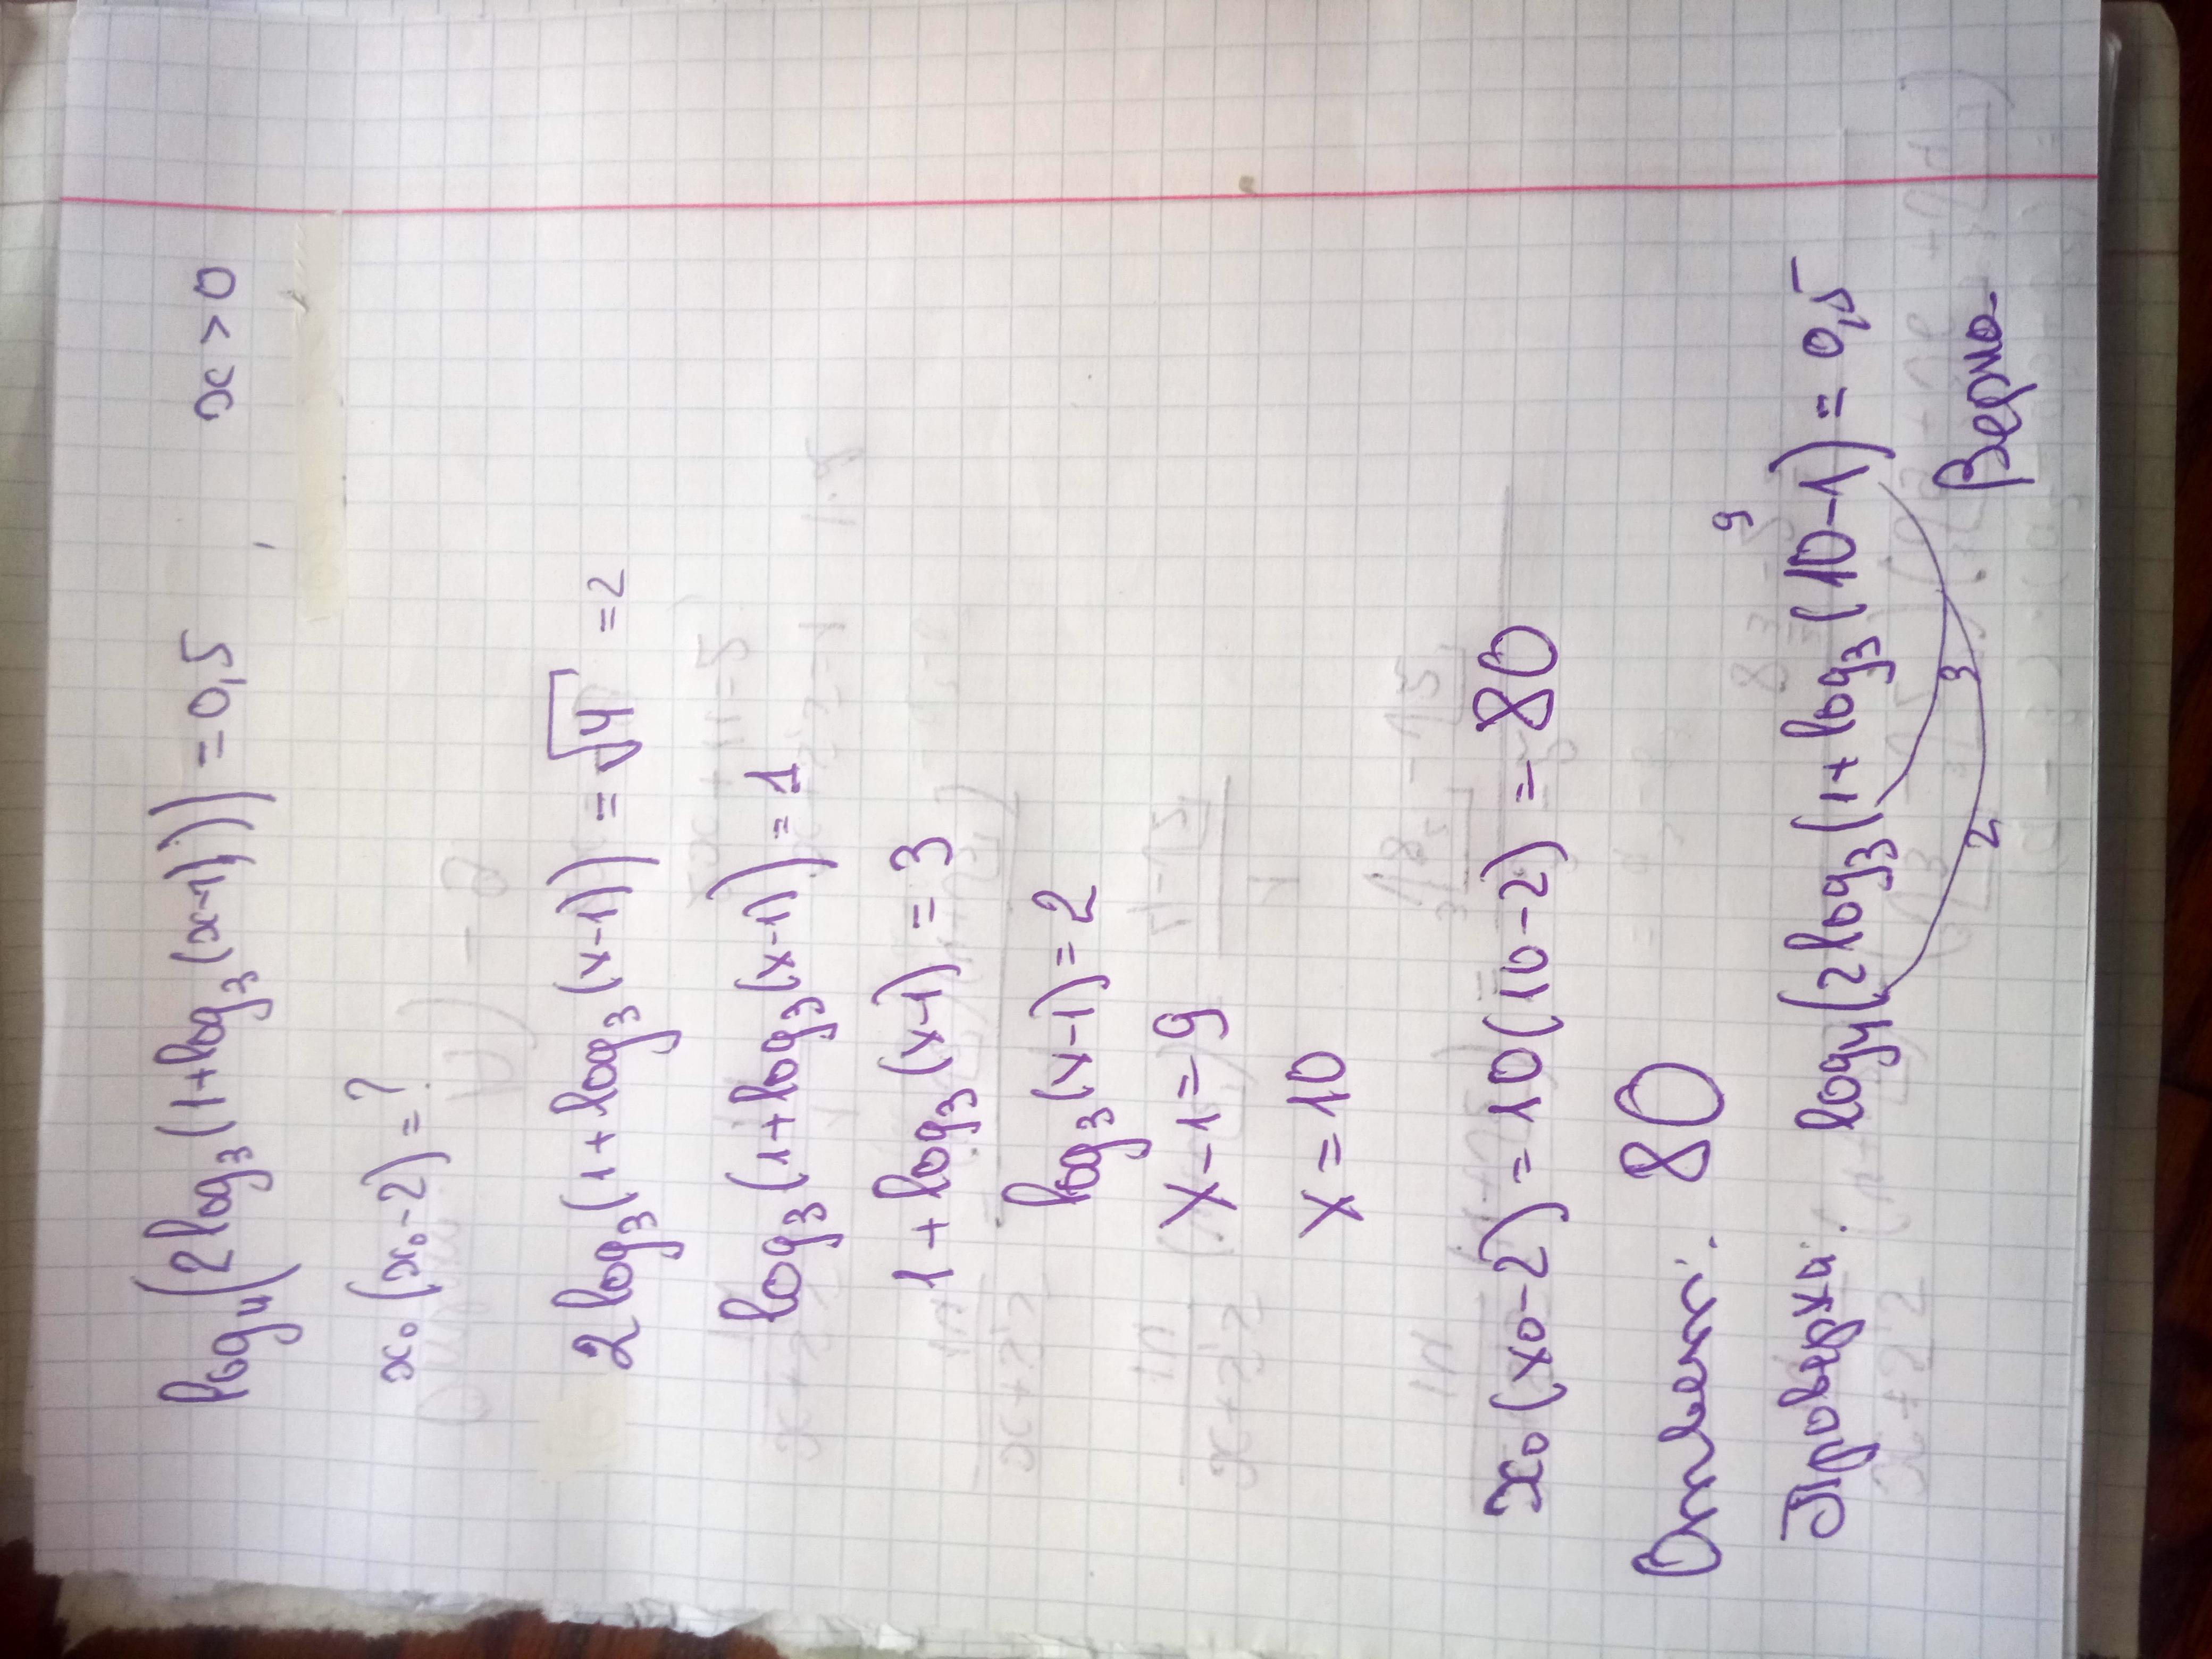 log₄(2log₃(1+log₃(x-1))) = 0,5    x > 0
x₀(x₀-2)=?
2log₃(1+log₃(x-1)) = √4 = 2
log₃(1+log₃(x-1)) = 1
1+log₃(x-1) = 3
log₃(x-1) = 2
x-1=9
x=10
x₀(x₀-2) = 10(10-2) = 80
Ответ: 80
9
Проверка: log₄(2log₃(1+log₃(10-1) = 0,5
3
2
Верно